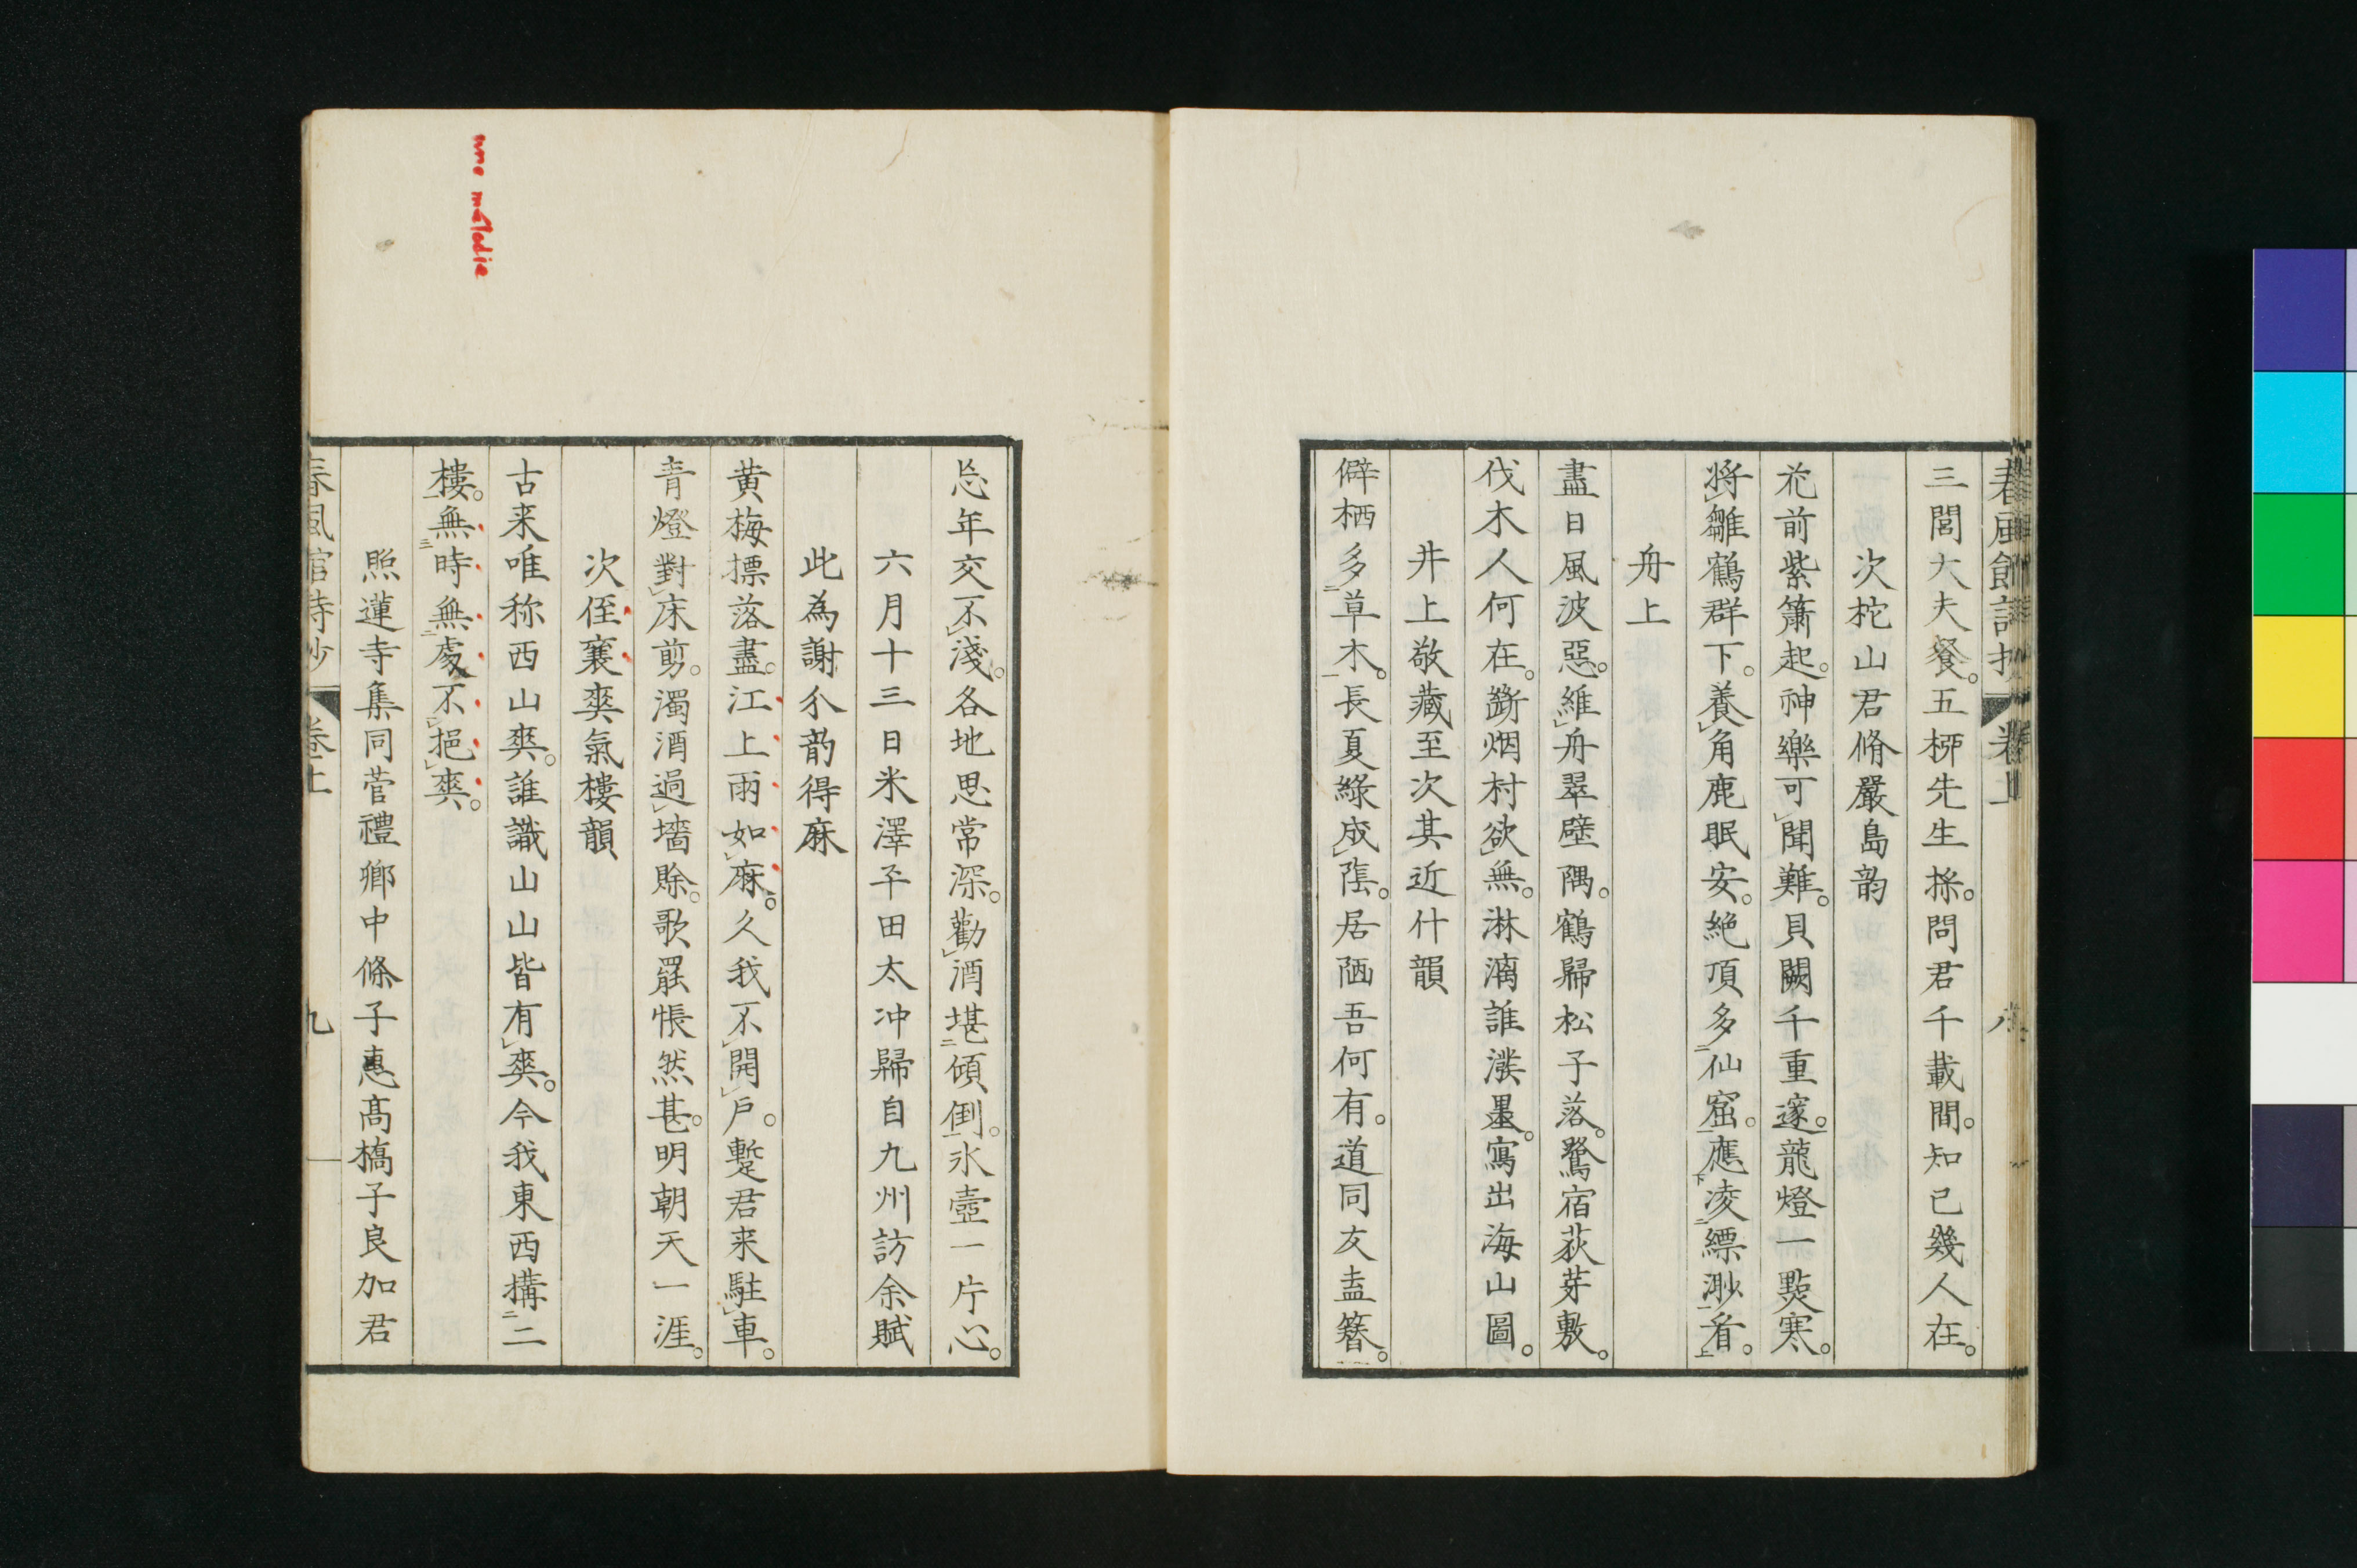 春風館詩抄 卷上 八
三閭大夫餐。五栁先生採。問君千載間。知已幾人在。
次柁山君脩嚴島韵
花前紫簫起。神樂可聞難。貝闕千重邃。龍燈一㸃寒。
將雛鶴群下。養角鹿眠安。絶頂多仙窟。應凌縹渺看。
舟上
盡日風波惡。維舟翠壁隅。鶴歸松子落。鷺宿荻芽敷。
伐木人何在。斷烟村欲無。淋漓誰潑墨。寫出海山圖。
井上敬藏至次其近什韻
僻栖多草木。長夏綠成陰。居陋吾何有。道同友盍簪。
忘年交不淺。各地思常深。勸酒堪傾倒。氷壺一片心。
六月十三日米澤平田太冲歸自九州訪余賦
此為謝分韵得麻
黄梅摽落盡。江上雨如麻。久我不開戶。蹔君来駐車。
青燈對床剪。濁酒過墻賒。歌罷悵然甚。明朝天一涯。
次侄襄爽氣樓韻
古来唯称西山爽。誰識山山皆有爽。今我東西搆二
樓。無時無處不挹爽。
照蓮寺集同菅禮鄉中條子惠髙橋子良加君
春風館詩抄 卷上 九
une maladie